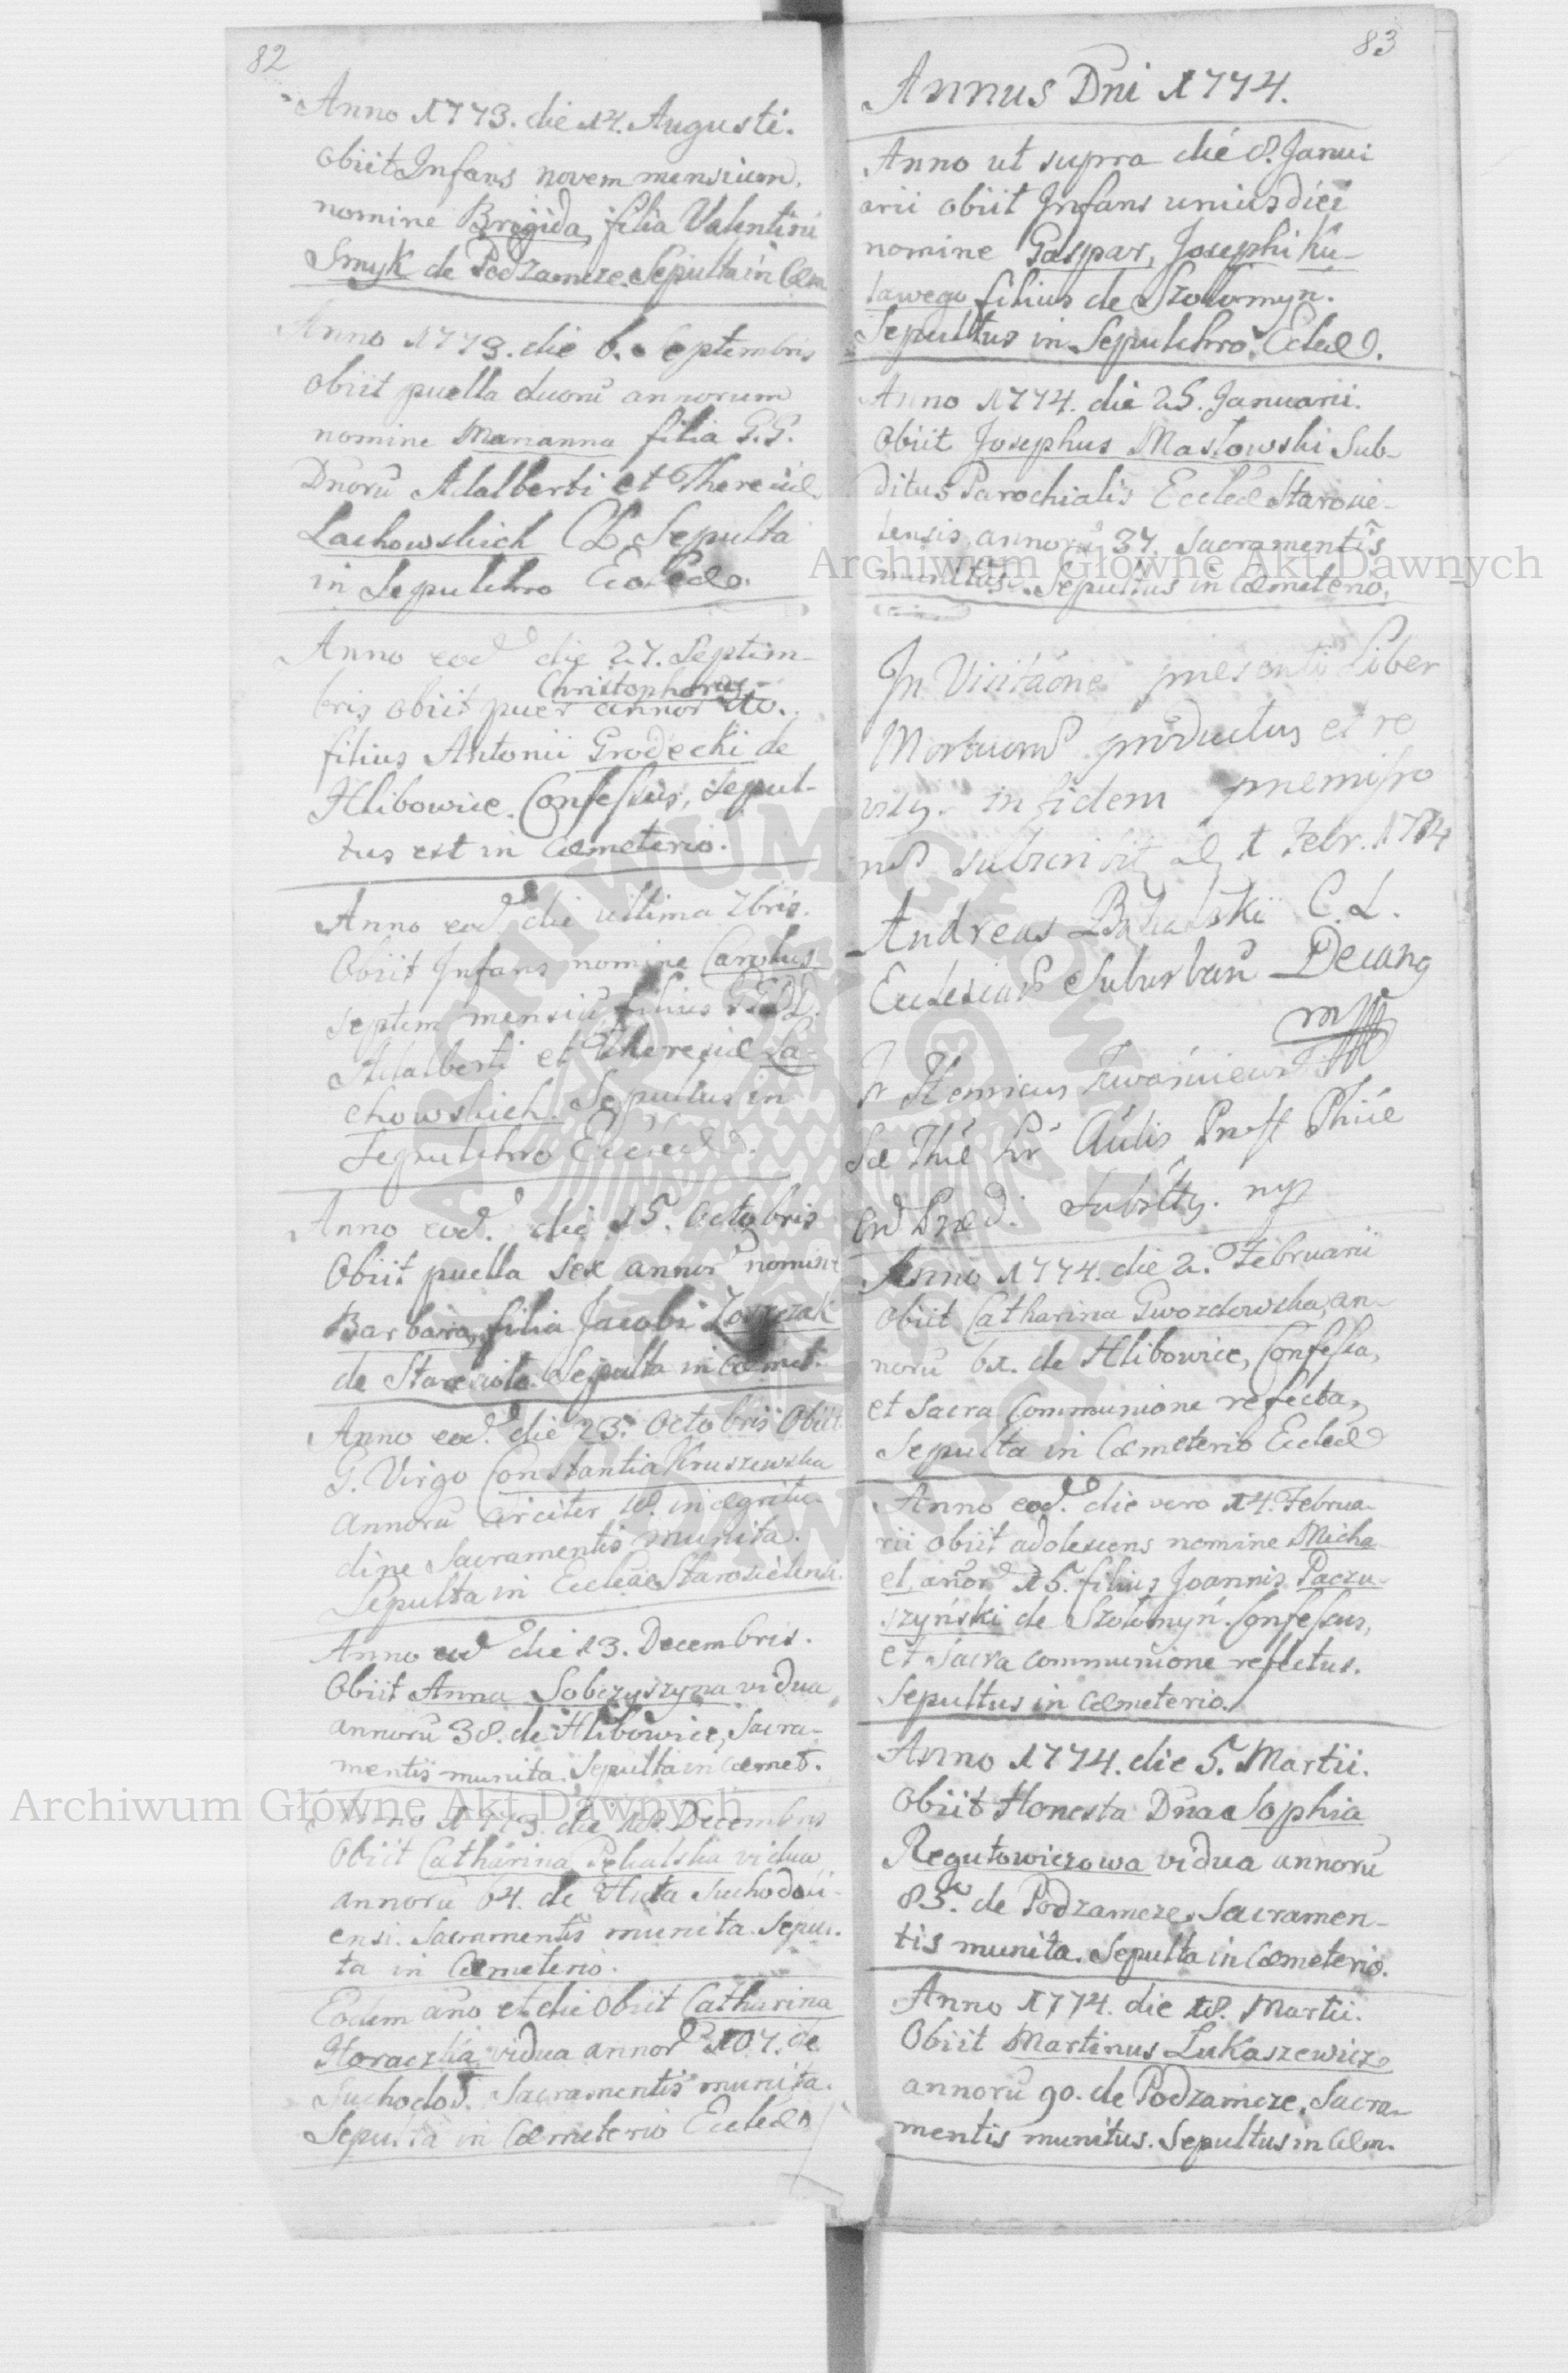 82
Anno 1773. die 14. Augusti.
obiit Infans novem mensium,
nomine Brigida, filia Valentini
Smyk de Podzamcze. Sepulta in Cæm
Anno 1773. die 6. Septembris
obiit puella duorū annorum
nomine Marianna filia G.G.
Dnorū Adalberti et Theresiæ
Lachowskich CL Sepulta
in Sepulchro Eccleæ.
Anno eod die 27. Septem-
Christophorus
bris obiit puer annor
filius Antonii Grodecki de
Hlibowice. Confessus, sepul-
tus est in Cæmeterio.
Anno eod. die ultima 7bris.
Obiit Infans nomine Carolus
septem mensiū, filius
Adalberti et Theresiæ La-
chowskich. Sepultus in
Sepulchro Eccleæ.
Anno eod. die 15. Octobris
Obiit puella sex annor nomine
Barbara, filia Jacobi
de Staresiolo. Sepulta in Cæmet.
Anno eod. die 23. Octobris Obiit
G. Virgo Constantia Kruszewska
annorū circiter 18. in ægritu-
dine Sacramentis munita.
Sepulta in Ecclea Starosielensi.
Anno eod die 13. Decembris.
Obiit Anna Sobczyszyna vidua
annorū 38. de Hlibowice, Sacra-
mentis munita. Sepulta in Cæmet.
Anno 1773. die 18. Decembris
Obiit Catharina vidua
annorū 64. de Huta Suchodoli-
ensi. Sacramentis munita. Sepul-
ta in Cæmeterio.
Eodem año et die Obiit Catharina
Horaczka vidua annor 107. de
Suchodol. Sacramentis munita.
Sepulta in Cæmeterio Eccleæ
83
Annus Dni 1774.
Anno ut supra die 8. Janui
arii obiit Infans unius diei
nomine Gaspar, Josephi Ku-
lawego filius de Szołomyn.
Sepultus in Sepulchro Eccleæ.
Anno 1774. die 25. Januarii.
Obiit Josephus Masłowski Sub-
ditus Parochialis Eccleæ Starosie-
lensis, annorū 37. Sacramentis
munitus. Sepultus in Cæmeterio.
In Visitaõne præsenti Liber
Mortuorū productus et re
visus. in fidem præmisso
rū subscribit d. 1 Febr. 1774
Andreas C. L.
Ecclesiarū Suburban Decanus
mpp
Fr Henricus
Sæ Thiæ Lr Aulis Proff Phiæ
Ord Præd. mp
Anno 1774. die 2. Februarii
obiit Catharina Gwozdowska, an-
norū 61. de Hlibowice, Confessa,
et sacra Communione refecta,
Sepulta in Cæmeterio Eccleæ
Anno eod. die vero 14. Februa-
rii obiit adolescens nomine Micha
el, añor 15. filius Joannis Paczu-
szyński de Szołomyń. Confessus,
et sacra communione refectus.
Sepultus in Cæmeterio.
Anno 1774. die 5. Martii.
Obiit Honesta Dña Sophia
Regułowiczowa vidua annorū
83. de Podzamcze. Sacramen-
tis munita. Sepulta in Cæmeterio.
Anno 1774. die 18. Martii.
Obiit Martinus Łukaszewicz
annorū 90. de Podzamcze. Sacra-
mentis munitus. Sepultus in Cæm.
Archiwum Główne Akt Dawnych
Archiwum Główne Akt Dawnych